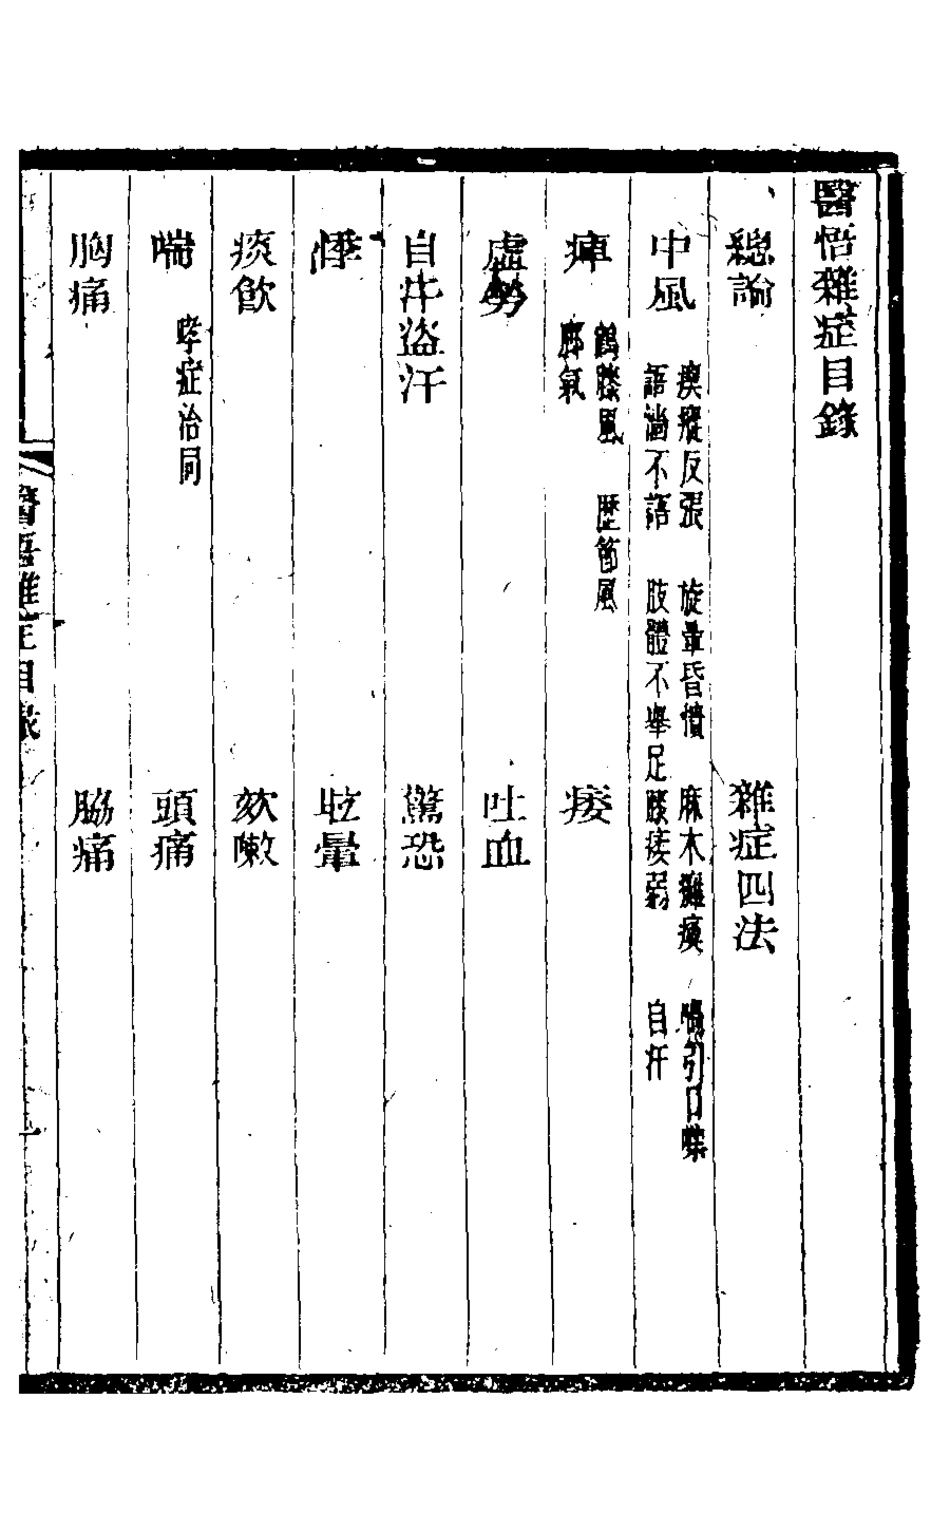 醫悟雜症目錄
總論 雜症四法
中風 瘈瘲反張 旋暈昏憒 麻木癱瘓 喎引口噤
語澁不語 肢體不舉足膝痿弱 自汗
痺 鶴膝風 歷節風
脚氣
痿
虛勞 吐血
自汗盜汗 驚恐
悸 眩暈
痰飲 欬嗽
喘 哮症治同 頭痛
胸痛 脇痛
醫悟雜症目錄